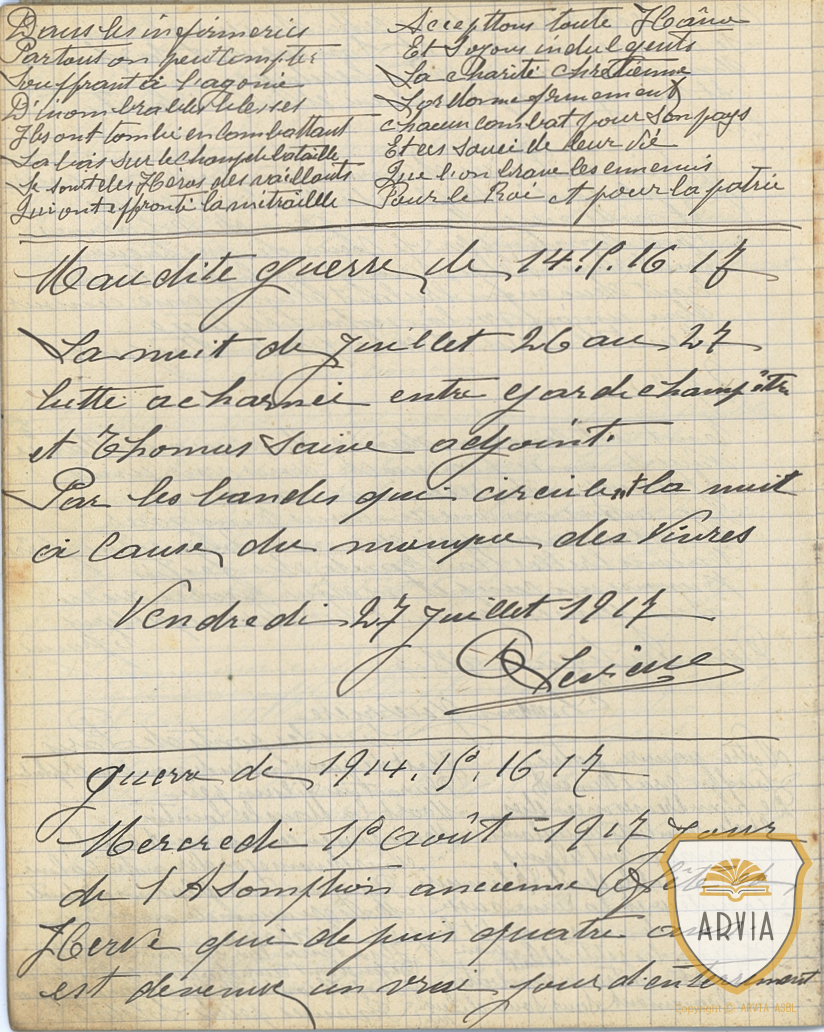 Dans les infirmeries
Partout on peut compter
Souffrant à l'agonie
D'inombrables blesses
Ils ont tombé en combattant
La bas sur le champ de bataille
Se sont des Héros des vaillants
Qui ont affronté la mitraille
Accepttons toute Hâine
Et Soyons indulgents
La charité chrétienne
L'ordonne formement
chacun combat pour Son pays
Et ces souci de leur vié
Que l'on brave les ennemis
Pour le Roi et pour la patrie
Maudite guerre de 14.15.16 17
La nuit de Juillet 26 au 27
lutte acharnée entre garde champêtre
et Thomas Saive adjoint.
Par les bandes qui circulent la nuit
à Cause du manque des Vivres
Vendredi 27 Juillet 1917
guerre de 1914.15.16 17
Mercredi 15 Août 1917 Jour
de l'Asomption ancienne fête de
Herve qui depuis quatre ans
est devenue un vrai jour d'enterrement
ARVIA
Copyright © ARVIA ASBL